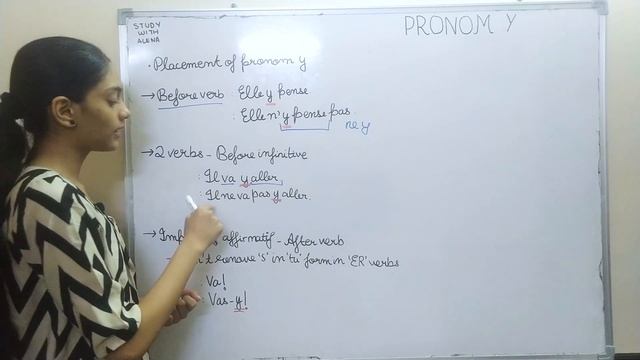 STUDY
WITH
ALENA
PRONOM Y
• Placement of pronom y
→ Before verb : Elle y pense
: Elle n'y pense pas
ne y
→ 2 verbs - Before infinitive
: Il va y aller
: Il ne va pas y aller.
→ affirmatif - After verb
remove 's' in 'tu' form in 'ER' verbs
: Va!
: Vas-y!